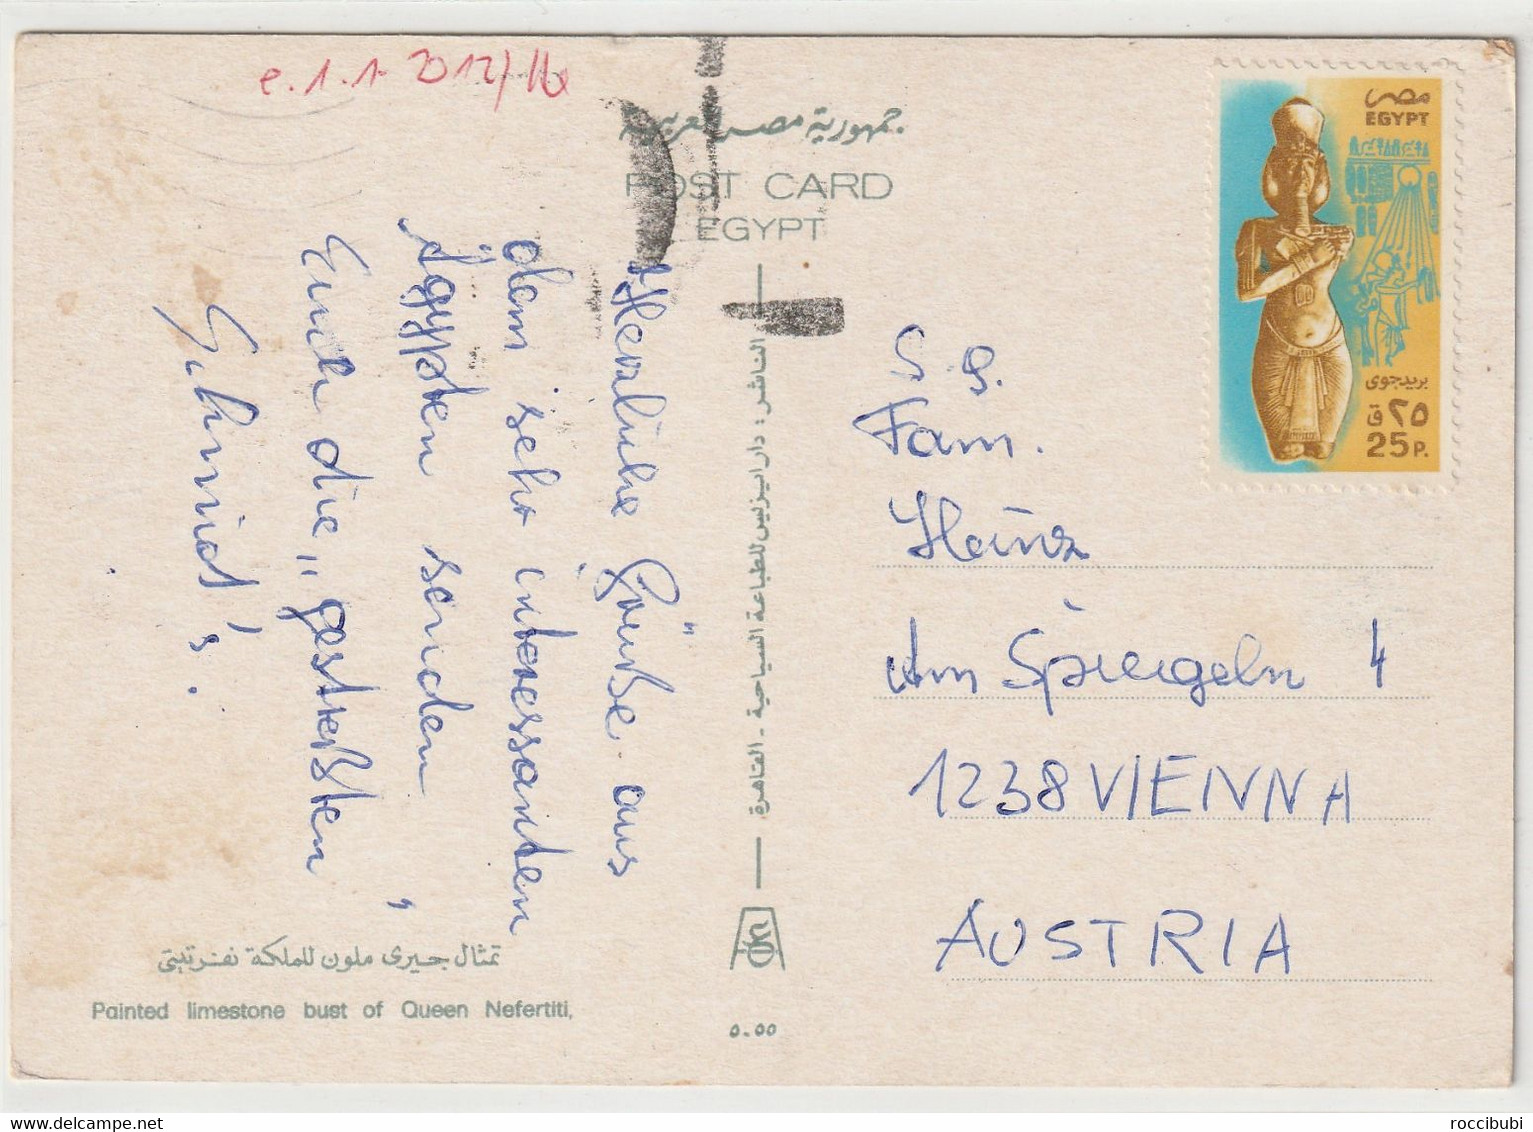 e. 1.1. 2012/
جمهورية مصر العربية
POST CARD
EGYPT
مصر
EGYPT
بريد جوى
٢٥ ق
25 P.
Herzliche Grüße aus
dem sehr interessanten
Ägypten senden
Euch die „gestreßten"
Schmid's.
الناشر : دار ايزيس للطباعة السياحية - القاهرة
S. g.
Fam.
Heinz
Am Spiegeln 4
1238 VIENNA
AUSTRIA
تمثال جيرى ملون للملكة نفرتيتى
Painted limestone bust of Queen Nefertiti,
٥٠٥٥
roccibubi